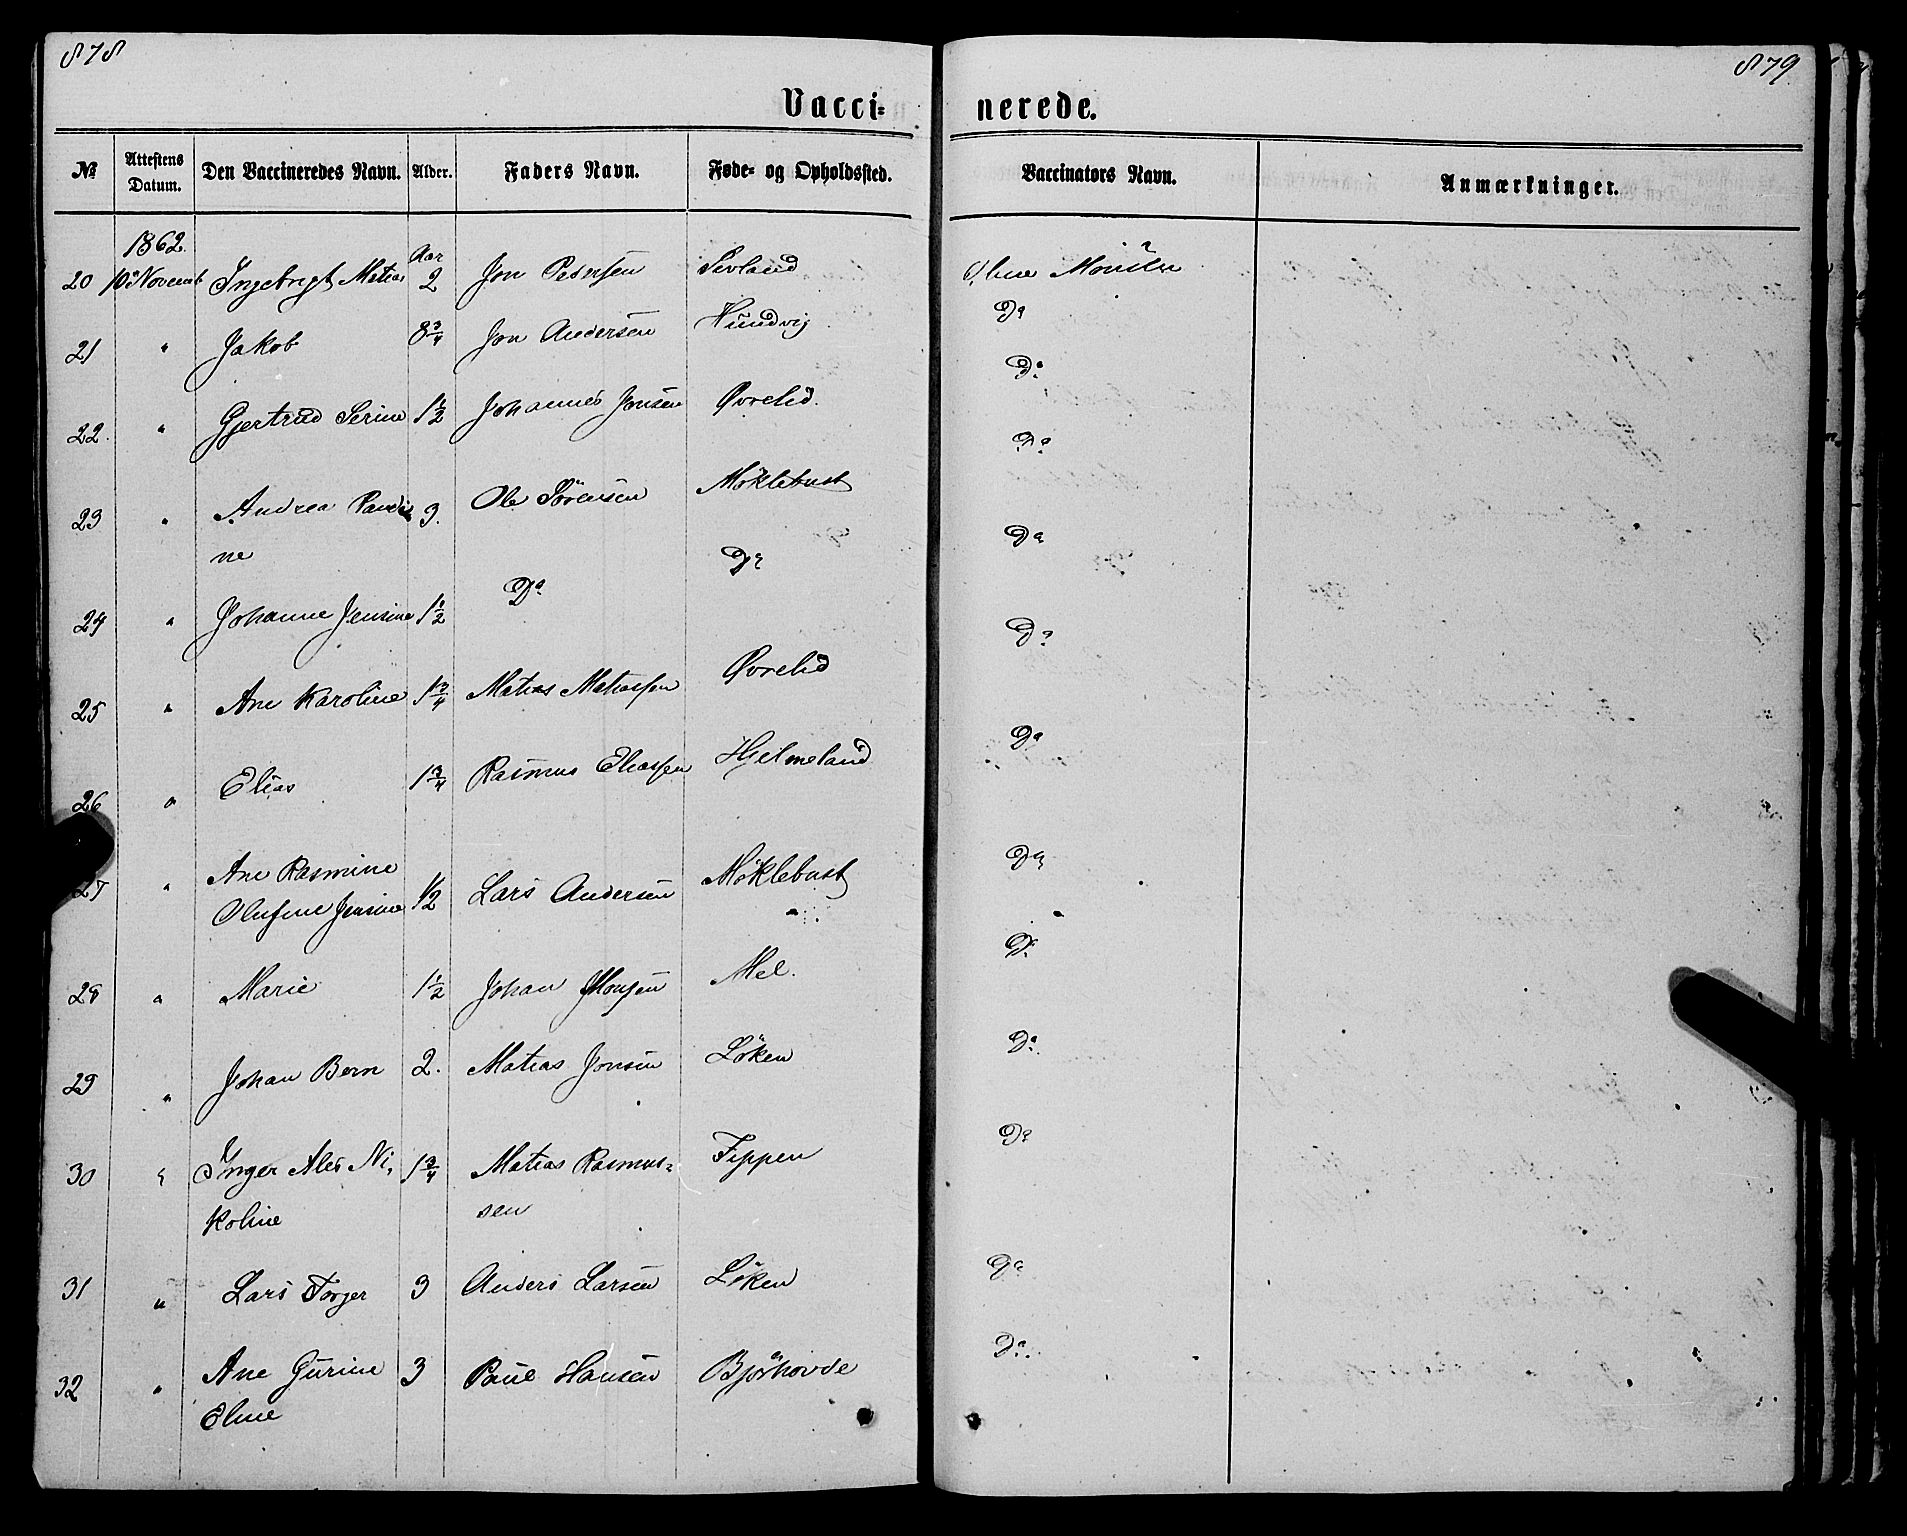 878
879
Vacci= nerede.
№ Attestens Datum. Den Vaccineredes Navn. Alder. Faders Navn. Føde= og Opholdssted. Vaccinators Navn. Anmærkninger.
1862. Aar
20 10de Novemb Ingebrigt Matias 2 Jon Pedersen Sevland Monsen
21 " Jakob 8 3/4 Jon Andersen Hundvig Do
22. " Gjertrud Serine 1 1/2 Johannes Jonsen Øvrelid. Do
23 " Andrea 3. Ole Sörensen Möklebust Do
ne
24 " Johanne Jensine 1 1/2 Do Do Do
25 " Ane Karoline 1 3/4 Matias Matiassen Øvrelid Do
26 " Elias 1 3/4 Rasmus Eliassen Hjelmeland Do
27 " Ane Rasmine
Olufine Jensine 1/2 Lars Andersen Möklebust Do
28 " Marie 1 1/2 Johan Monsen Mel. Do
29 " Johan Bern 2. Matias Jonsen Löken Do
30 " Inger Ales Ni, 1 3/4 Matias Rasmus= Tippen Do
koline sen
31 " Lars Torger 3 Anders Larsen Löken Do
32 " Ane Gurine 3 Paul Hansen Björhovde Do
Eline